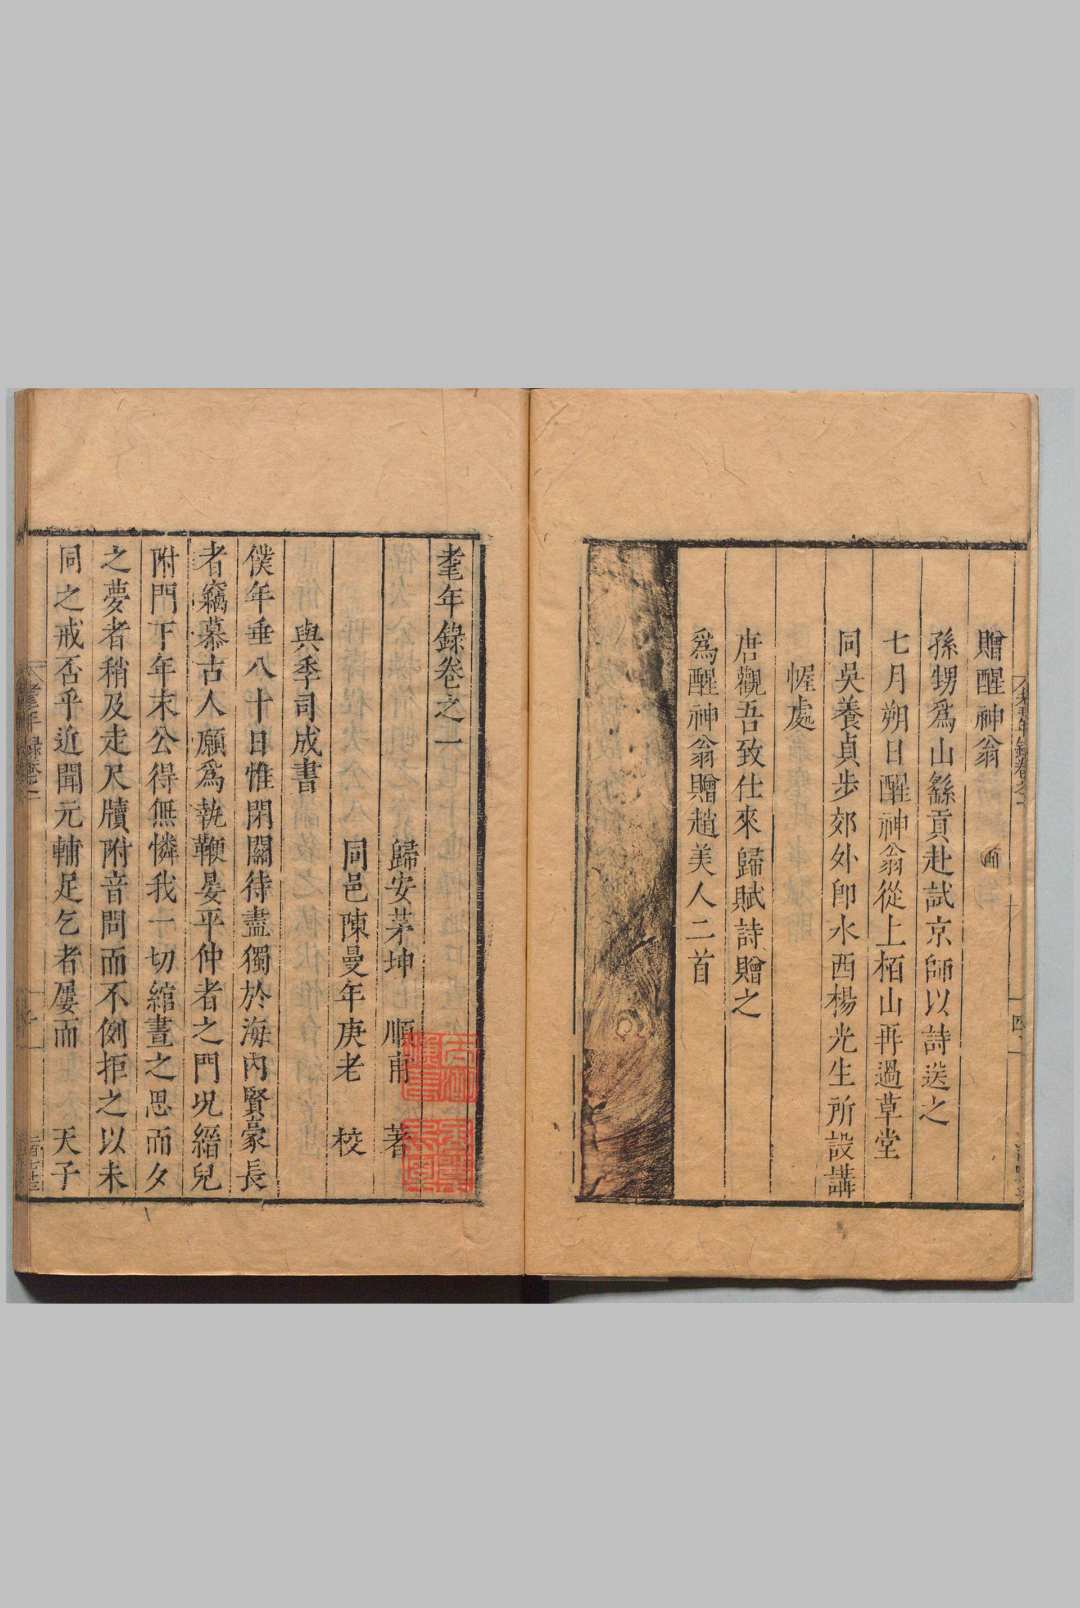 贈醒神翁
孫甥爲山繇貢赴試京師以詩送之
七月朔日醒神翁從上栢山再過草堂
同吳養貞步郊外卽水西楊光生所設講
幄處
唐觀吾致仕來歸賦詩贈之
爲醒神翁贈趙美人二首
耄年錄卷之一
歸安茅坤 順甫 著
同邑陳曼年庚老 校
與季司成書
僕年垂八十日惟閉關待盡獨於海內賢豪長
者竊慕古人願爲執鞭晏平仲者之門况縉兒
附門下年末公得無憐我一切綰晝之思而夕
之夢者稍及走尺牘附音問而不例拒之以未
同之戒否乎近聞元輔足乞者屢而 天子
耄年錄卷一